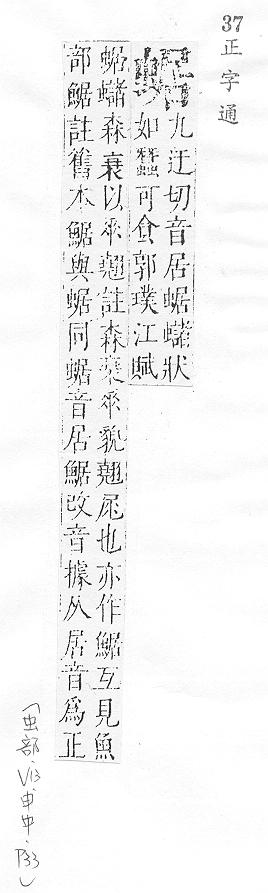 37 正字通
蜛 九迂切音居蜛蠩狀
如蠶可食郭璞江賦
蜛蠩森衰以𠂹翹註森衰𠂹貌翹尾也亦作䱟互見魚
部䱟註舊本䱟與蜛同蜛音居䱟改音據从居音為正
(虫部.V13.申中.P33)